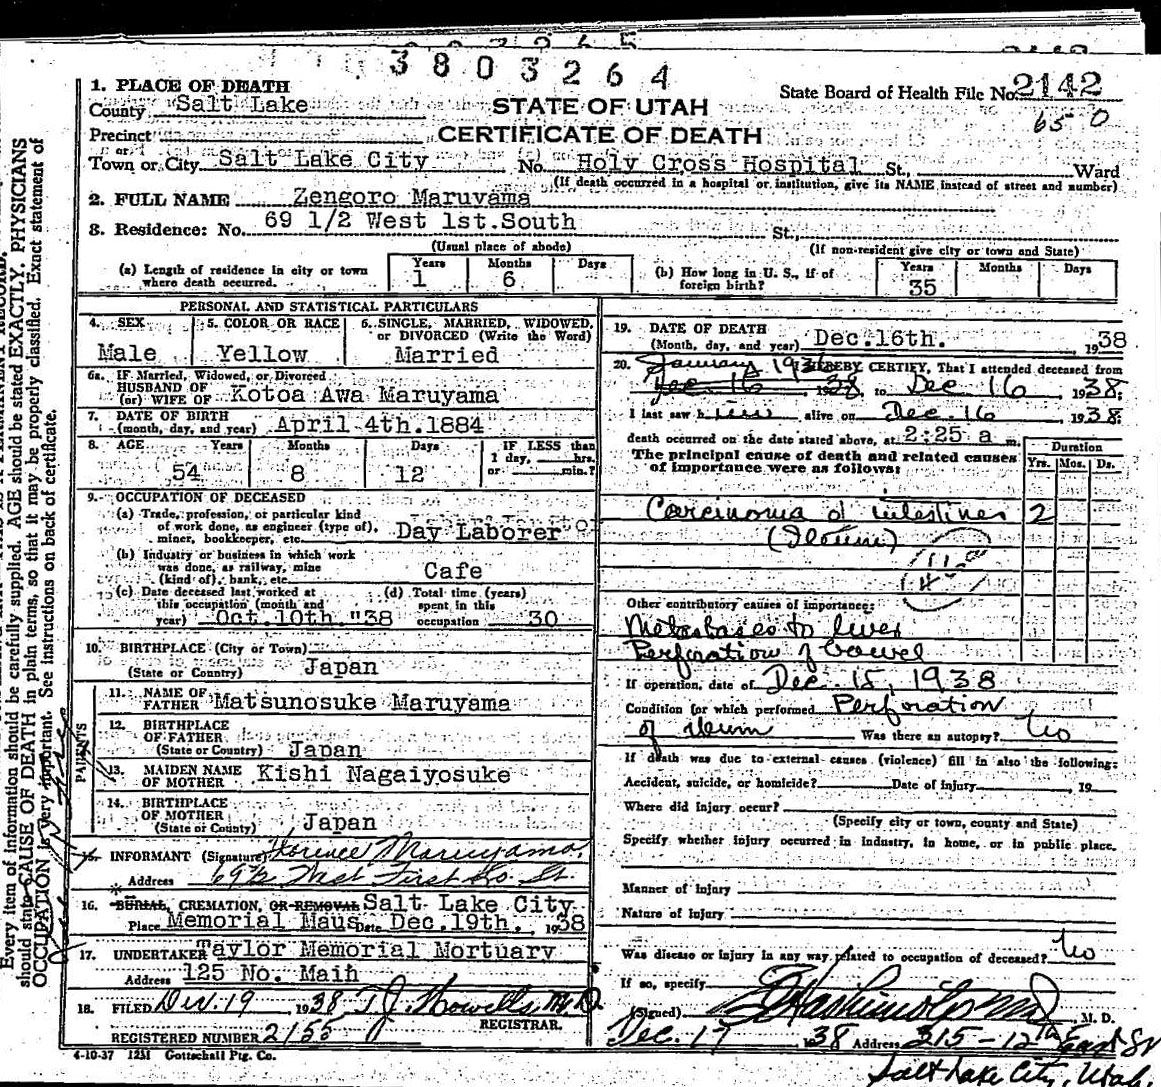 3803264
1. PLACE OF DEATH
County Salt Lake
STATE OF UTAH
State Board of Health File No. 2142
65 0
Precinct
CERTIFICATE OF DEATH
or
Town or City Salt Lake City No. Holy Cross Hospital St., Ward
(If death occurred in a hospital or institution, give its NAME instead of street and number)
2. FULL NAME Zengoro Maruyama
3. Residence: No. 69 1/2 West 1st.South St.,
(Usual place of abode) (If non-resident give city or town and State)
(a) Length of residence in city or town where death occurred. Years 1 Months 6 Days
(b) How long in U. S., if of foreign birth? Years 35 Months Days
PERSONAL AND STATISTICAL PARTICULARS
4. SEX Male
5. COLOR OR RACE Yellow
6. SINGLE, MARRIED, WIDOWED, or DIVORCED (Write the Word) Married
6a. IF Married, Widowed, or Divorced
HUSBAND OF
(or) WIFE OF Kotoa Awa Maruyama
7. DATE OF BIRTH
(month, day, and year) April 4th.1884
8. AGE Years 54 Months 8 Days 12 IF LESS than 1 day, hrs. or min.?
9. OCCUPATION OF DECEASED
(a) Trade, profession, or particular kind
of work done, as engineer (type of),
miner, bookkeeper, etc. Day Laborer
(b) Industry or business in which work
was done, as railway, mine
(kind of), bank, etc. Cafe
(c) Date deceased last worked at
this occupation (month and
year) Oct.10th."38
(d) Total time (years)
spent in this
occupation 30
10. BIRTHPLACE (City or Town)
(State or Country) Japan
PARENTS
11. NAME OF
FATHER Matsunosuke Maruyama
12. BIRTHPLACE
OF FATHER
(State or Country) Japan
13. MAIDEN NAME
OF MOTHER Kishi Nagaiyosuke
14. BIRTHPLACE
OF MOTHER
(State or County) Japan
INFORMANT (Signature) Florence Maruyama
Address 69½ West First So. St.
16. BURIAL, CREMATION, OR REMOVAL Salt Lake City
Place Memorial Maus Date Dec.19th. 1938
17. UNDERTAKER Taylor Memorial Mortuary
Address 125 No. Main
18. FILED Dec. 19 1938 T J Howells M.D.
REGISTRAR.
REGISTERED NUMBER 2155
4-10-37 12M Gottschall Ptg. Co.
19. DATE OF DEATH
(Month, day, and year) Dec.16th. 1938
20. I HEREBY CERTIFY, That I attended deceased from
January 193
Dec 16 1938, to Dec 16, 1938;
I last saw him alive on Dec. 16 1938;
death occurred on the date stated above, at 2:25 a m.
The principal cause of death and related causes
of importance were as follows:
Duration
Yrs. Mos. Ds.
Carcinoma of intestines 2
(Ileum)
Other contributory causes of importance:
Metastases to liver
Perforation of bowel
If operation, date of Dec. 15, 1938
Condition for which performed Perforation
of ileum Was there an autopsy? No
If death was due to external causes (violence) fill in also the following:
Accident, suicide, or homicide? Date of injury 19
Where did Injury occur?
(Specify city or town, county and State)
Specify whether injury occurred in industry, in home, or in public place.
Manner of Injury
Nature of Injury
Was disease or injury in any way related to occupation of deceased? No
If so, specify
(Signed) E Hashimoto M.D. M. D.
Dec. 17 1938 Address 315 - 12th East St
Salt Lake City, Utah.
Every item of information should be carefully supplied. AGE should be stated EXACTLY. PHYSICIANS
should state CAUSE OF DEATH in plain terms, so that it may be properly classified. Exact statement of
OCCUPATION is very important. See instructions on back of certificate.